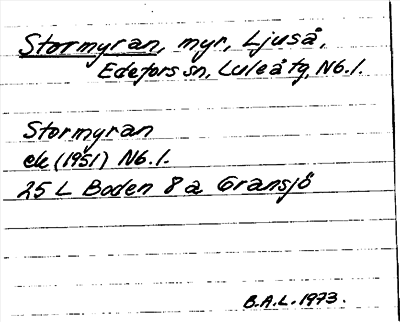 Stormyran, myr, Ljuså,
Edefors sn, Luleå tg, Nb.l.
Stormyran
ek (1951) Nb.l.
25 L Boden 8 a Gransjö
B.A.L. 1973.